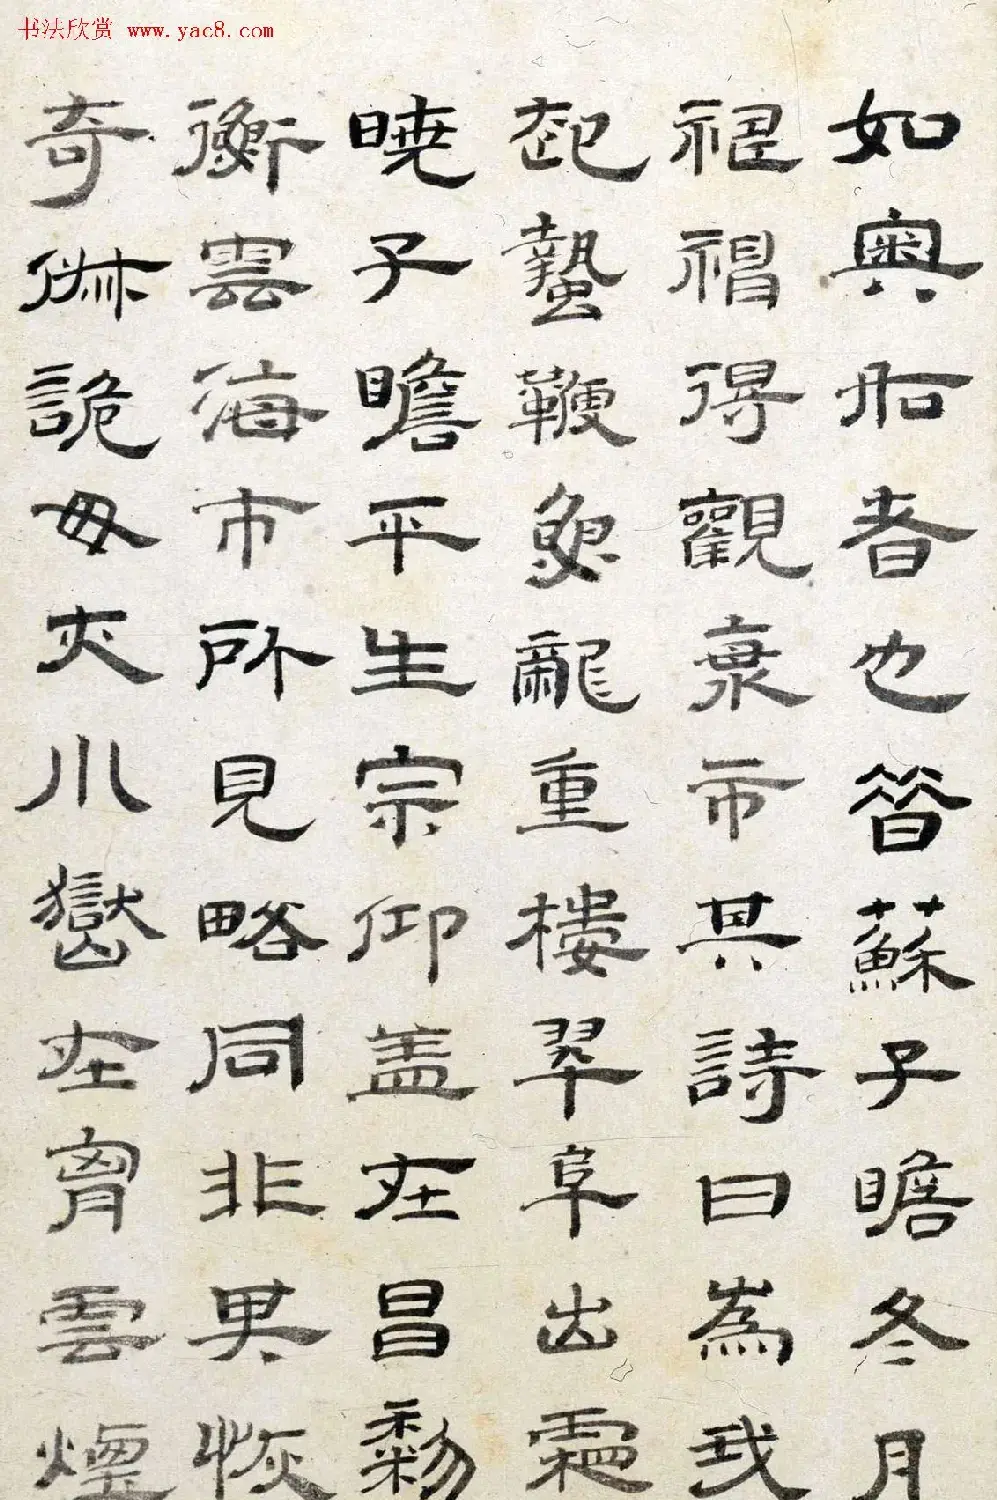 书法欣赏 www.yac8.com
如奧者也昔蘇子瞻冬月
得觀市其詩曰為我
起蟄鞭魚龍重樓翠阜出霜
曉子瞻平生宗仰蓋在昌黎
衡雲海市所見略同非異恢
奇俶詭夫川嶽在胷雲煙